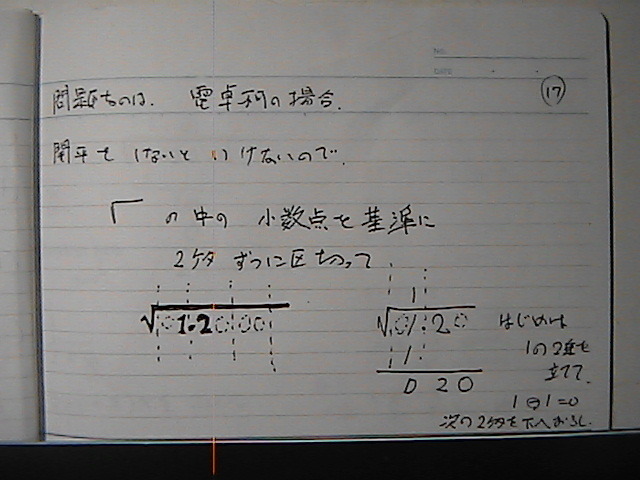 NO.
DATE
⑰
問題なのは、電卓不可の場合、
開平をしないといけないので、
√ の中の 小数点を基準に
2ケタずつに区切って
√01.20000
1
√01.20
1
020
はじめは
1の2乗を
立てて、
1⊖1=0
次の2ケタを下へおろし、